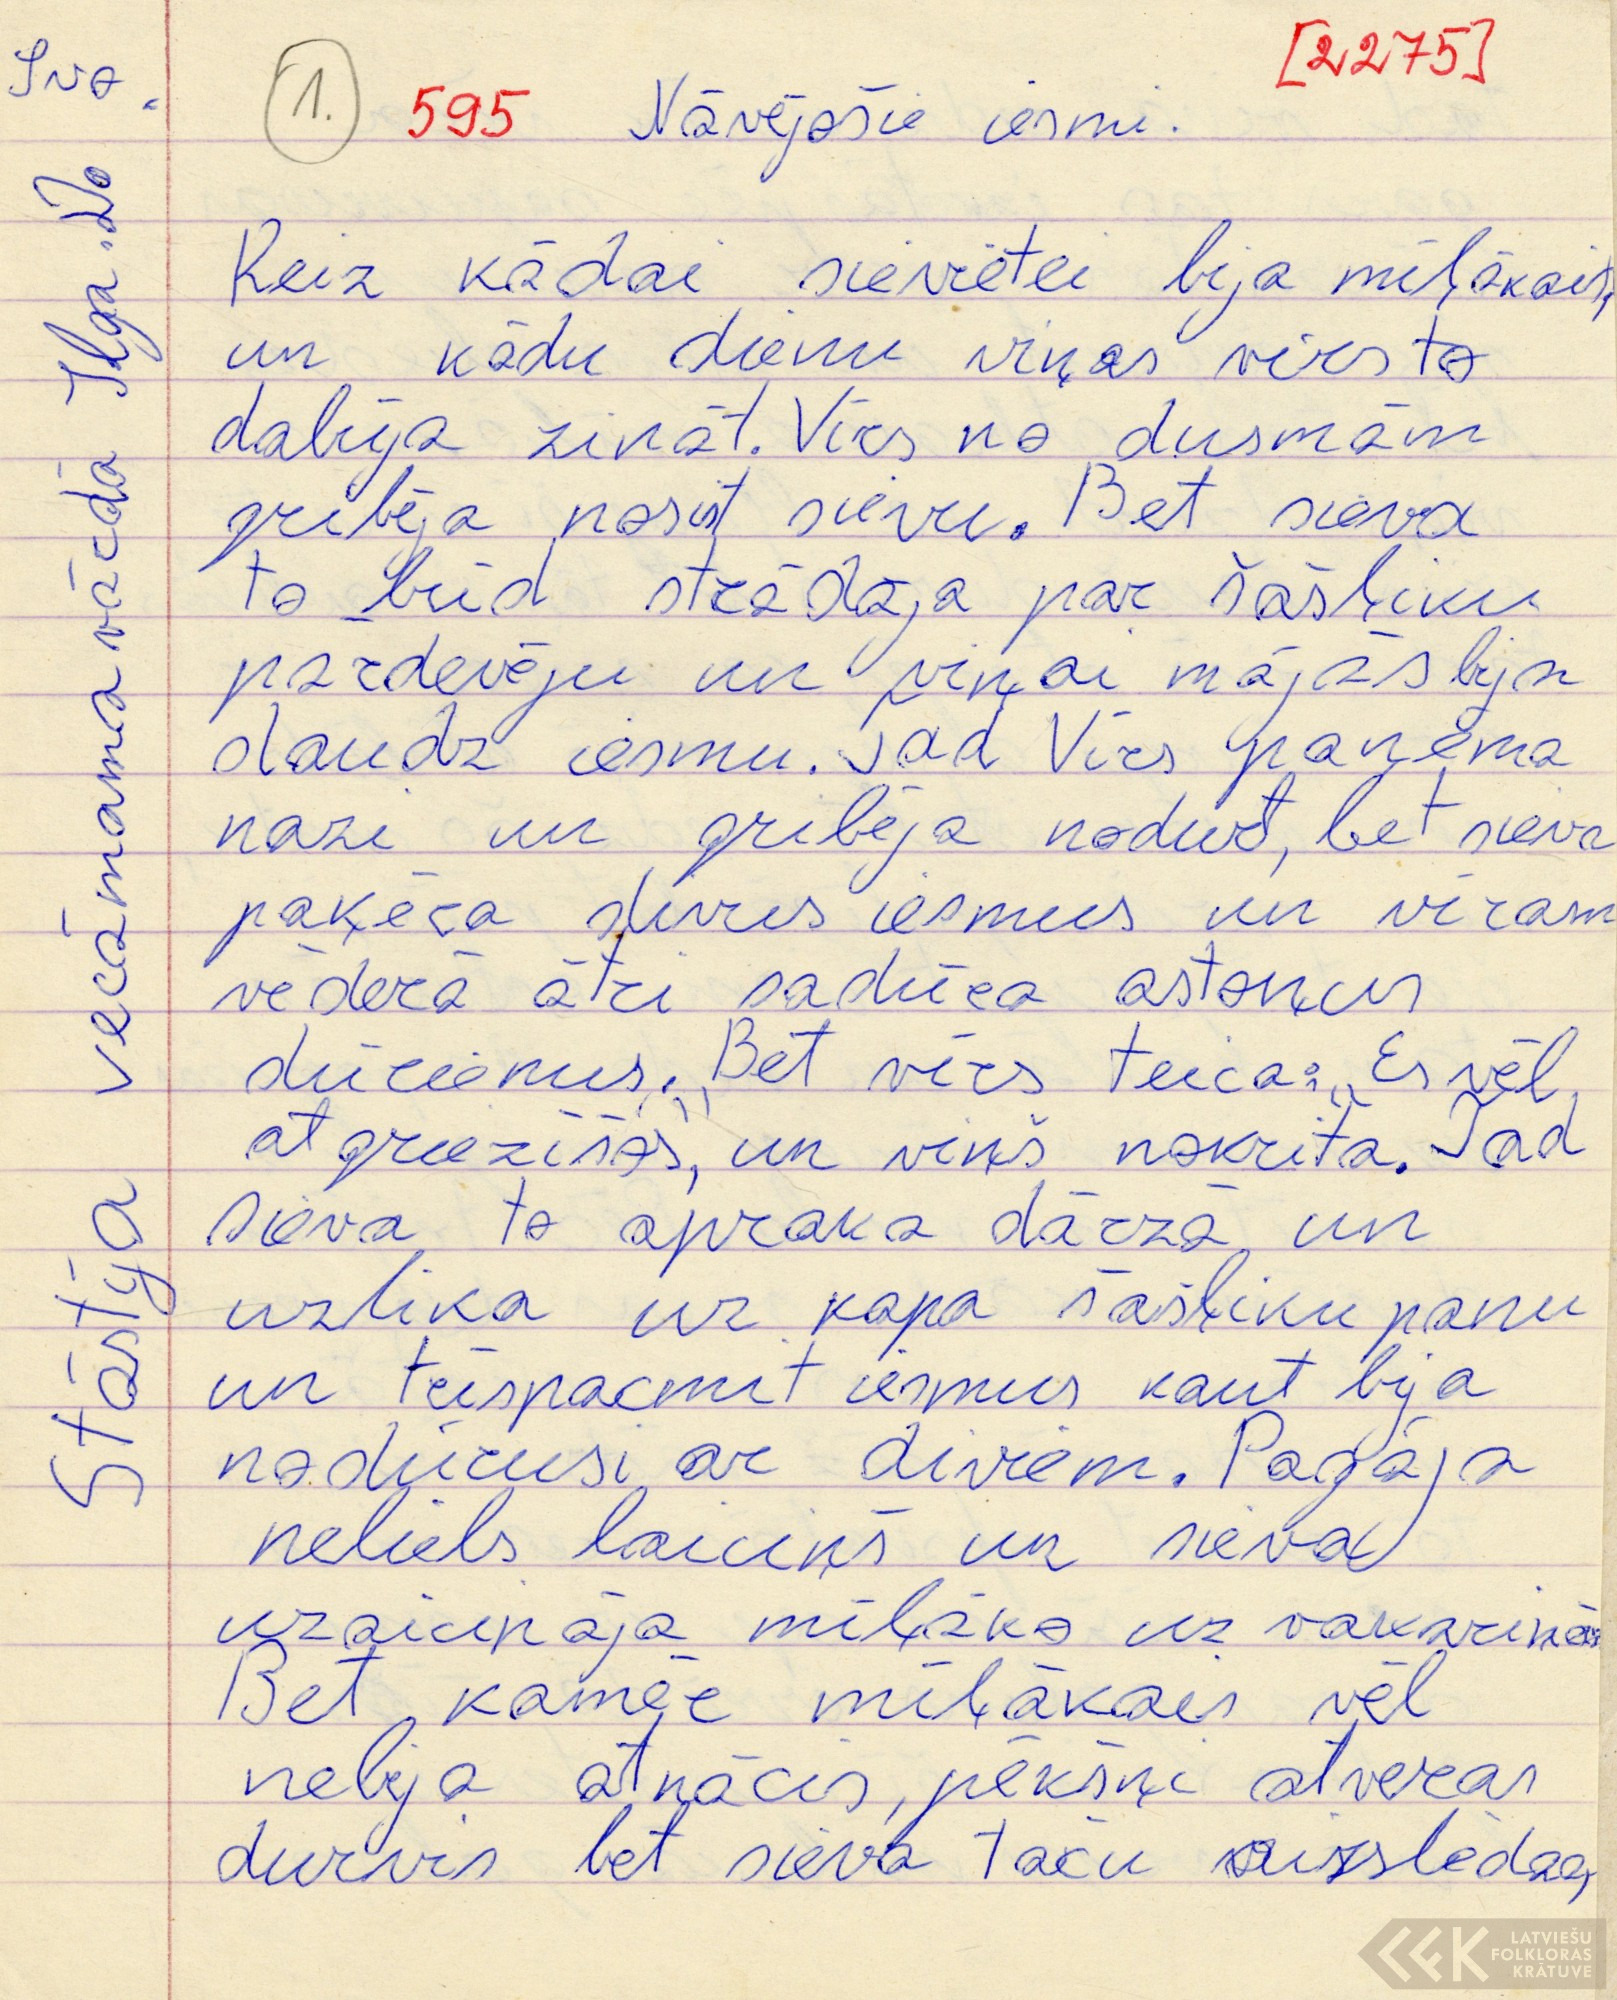 [2275]
1. 595 Nāvējošie iesmi.
Reiz kādai sievietei bija mīļākais,
un kādu dienu viņas vīrs to
dabūja zināt. Vīrs no dusmām
gribēja nosist sievu. Bet sieva
to brīd strādāja par šašļiku
pārdevēju un viņai mājās bija
daudz iesmu. Tad Vīrs paņēma
nazi un gribēja nodurt, bet sieva
paķēra divus iesmus un vīram
vēderā ātri sadūra astoņus
dūrienus. Bet vīrs teica: „Es vēl
atgriezīšos", un viņš nokrita. Tad
sieva to apraka dārzā un
uzlika uz kapa šašļiku panu
un trīspacmit iesmus kaut bija
nodūrusi ar diviem. Pagāja
neliels laiciņš un sieva
uzaicināja mīļāko uz vakariņām
Bet kamēr mīļākais vēl
nebija atnācis, pēkšņi atveras
durvis bet sieva taču aizslēdza,
Stāstīja vecāmamma vārdā Ilga. Do
LATVIEŠU
FOLKLORAS
KRĀTUVE